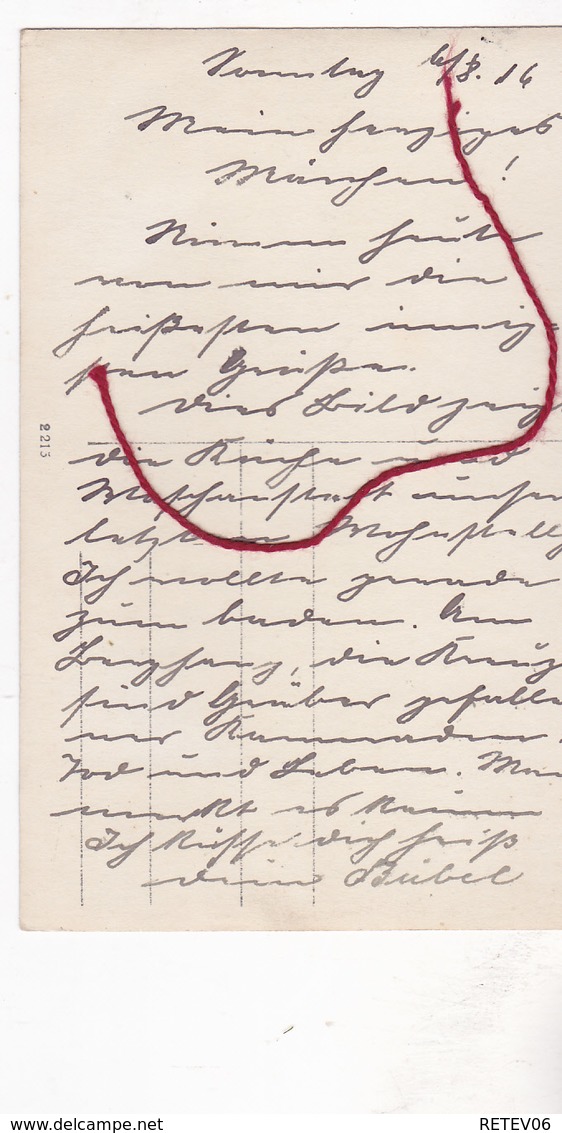 Sonntag 6/8. 16
Mein herziges
Märchen!
Nimm heute
von mir die
heißesten innig-
sten Grüße.
Dies Bild zeigt
die Küche und
Waschanstalt unserer
letzten
Ich wollte gerade
zum baden. Am
Berghang, die Kreuze
sind Gräber gefalle
ner Kameraden.
Tod und Leben. Man
merkt es kaum
Ich küsse dich heiß
dein Bubel
2213
delcampe.net
RETEV06